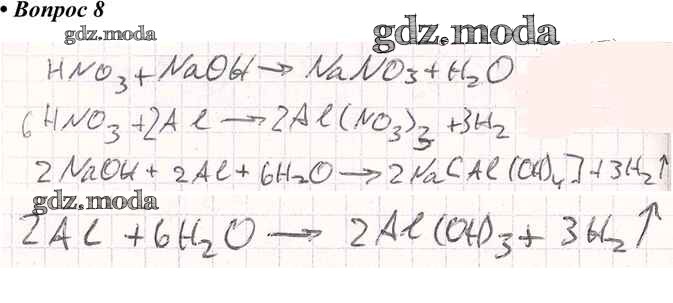 • Вопрос 8
gdz.moda
gdz.moda
HNO₃ + NaOH → NaNO₃ + H₂O
6HNO₃ + 2Al → 2Al(NO₃)₃ + 3H₂
2NaOH + 2Al + 6H₂O → 2Na[Al(OH)₄] + 3H₂↑
gdz.moda
2Al + 6H₂O → 2Al(OH)₃ + 3H₂↑